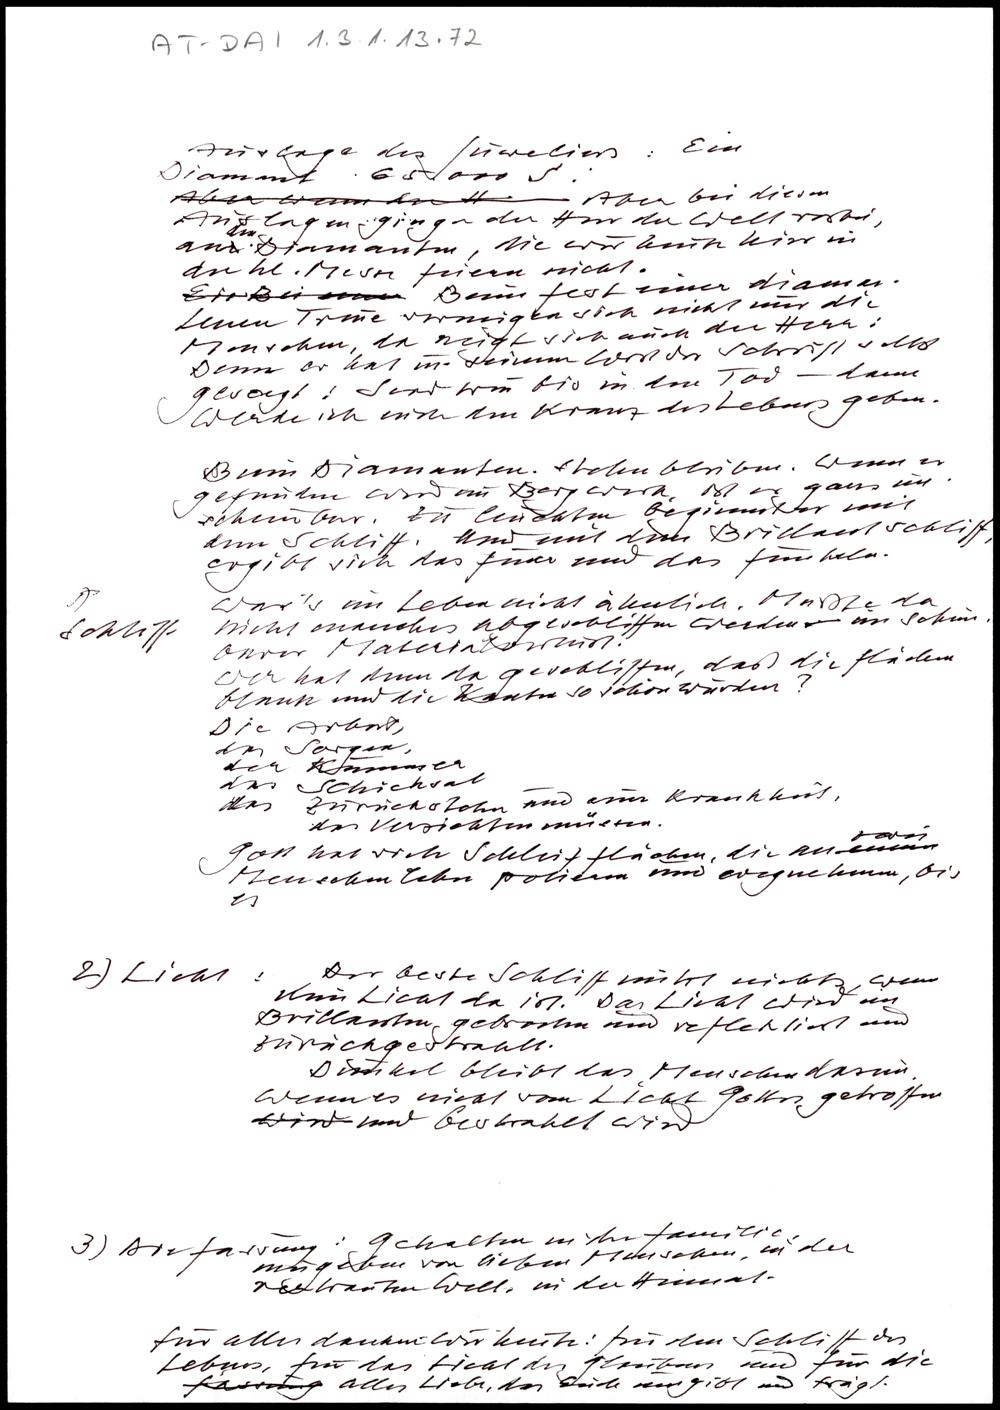 AT-DAI 1.3.1.13.72
Auslage des Juweliers : Ein
Diamant 65.000 S.
Aber wenn der H Aber bei diesen
Auslagen ginge der Herr der Welt vorbei,
an den Diamanten, die wir heute hier in
der hl. Messe feiern nicht.
Beim Fest einer diaman-
tenen Treue verneigen sich nicht nur die
Menschen, da neigt sich auch der Herr :
Denn er hat in seinem Wort der Schrift selbst
gesagt : Seid treu bis in den Tod – dann
werde ich euch den Kranz des Lebens geben.
Beim Diamanten stehen bleiben. Wenn er
gefunden wird im Bergwerk, ist er ganz un-
scheinbar. Zu leuchten beginnt er mit
dem Schliff. Und mit dem Brillantschliff,
ergibt sich das Feuer und das Funkeln.
1)
Schliff
War's im Leben nicht ähnlich. Mußte da
nicht manches abgeschliffen werden im
Wer hat denn da geschliffen, daß die Flächen
blank und die Kanten so schön wurden ?
Die Arbeit,
das Sorgen,
der Kummer
das Schicksal
das Zurückstehen und eine Krankheit,
das Verzichten müssen.
Gott hat viele Schleifflächen, die an
Menschenleben polieren und wegnehmen, bis
es
2) Licht : Der beste Schliff nützt nichts, wenn
kein Licht da ist. Das Licht wird im
Brillanten gebrochen und reflektiert und
zurückgestrahlt.
Dunkel bleibt das Menschendasein,
wenn es nicht vom Licht Gottes getroffen
wird und bestrahlt wird
3) Die Fassung : Gehalten in der Familie,
umgeben von lieben Menschen, in der
vertrauten Welt, in der Heimat.
Für alles danken wir heute : für den Schliff des
Lebens, für das Licht des Glaubens und für die
Fassung aller Liebe, das Ende umgibt und trägt.